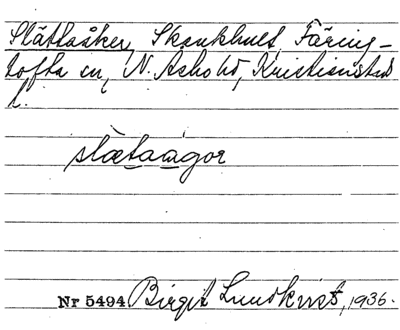 Slättaåker, Skankhult, Färing-
tofta sn, N. Åsbo hd, Kristianstad
l.
slætaågor
Nr 5494 Birgit Lundkvist, 1936.